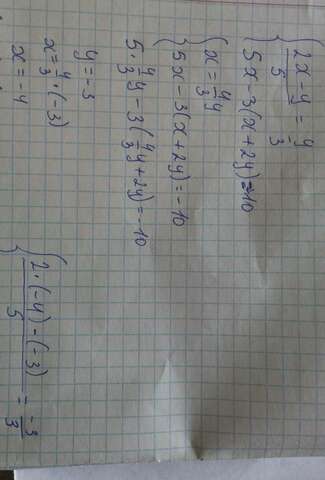 { (2x - y)/5 = y/3
5x - 3(x + 2y) = -10
{ x = 4/3 y
5x - 3(x + 2y) = -10
5 · 4/3 y - 3(4/3 y + 2y) = -10
y = -3
x = 4/3 · (-3)
x = -4
{ (2 · (-4) - (-3))/5 = -3/3